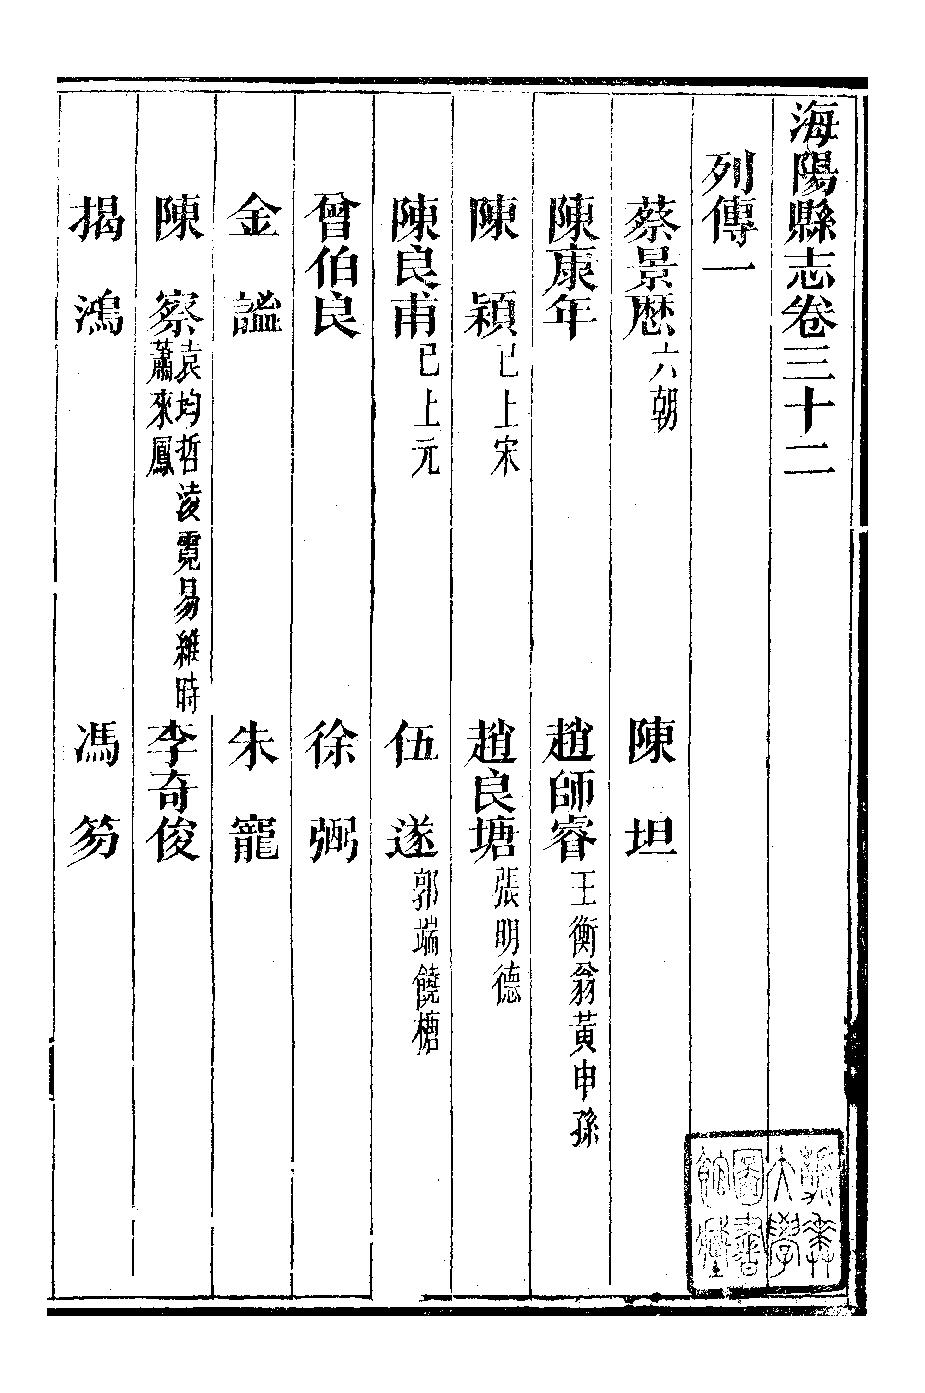 海陽縣志卷三十二
列傳一
蔡景厯六朝 陳坦
陳康年 趙師睿王衡翁黃申孫
陳頴已上宋 趙良塘張明德
陳良甫已上元 伍遂郭端饒楷
曾伯良 徐弼
金謐 朱寵
陳察袁均哲淩霓易維時蕭來鳳 李奇俊
揭鴻 馮芴
大學圖書館